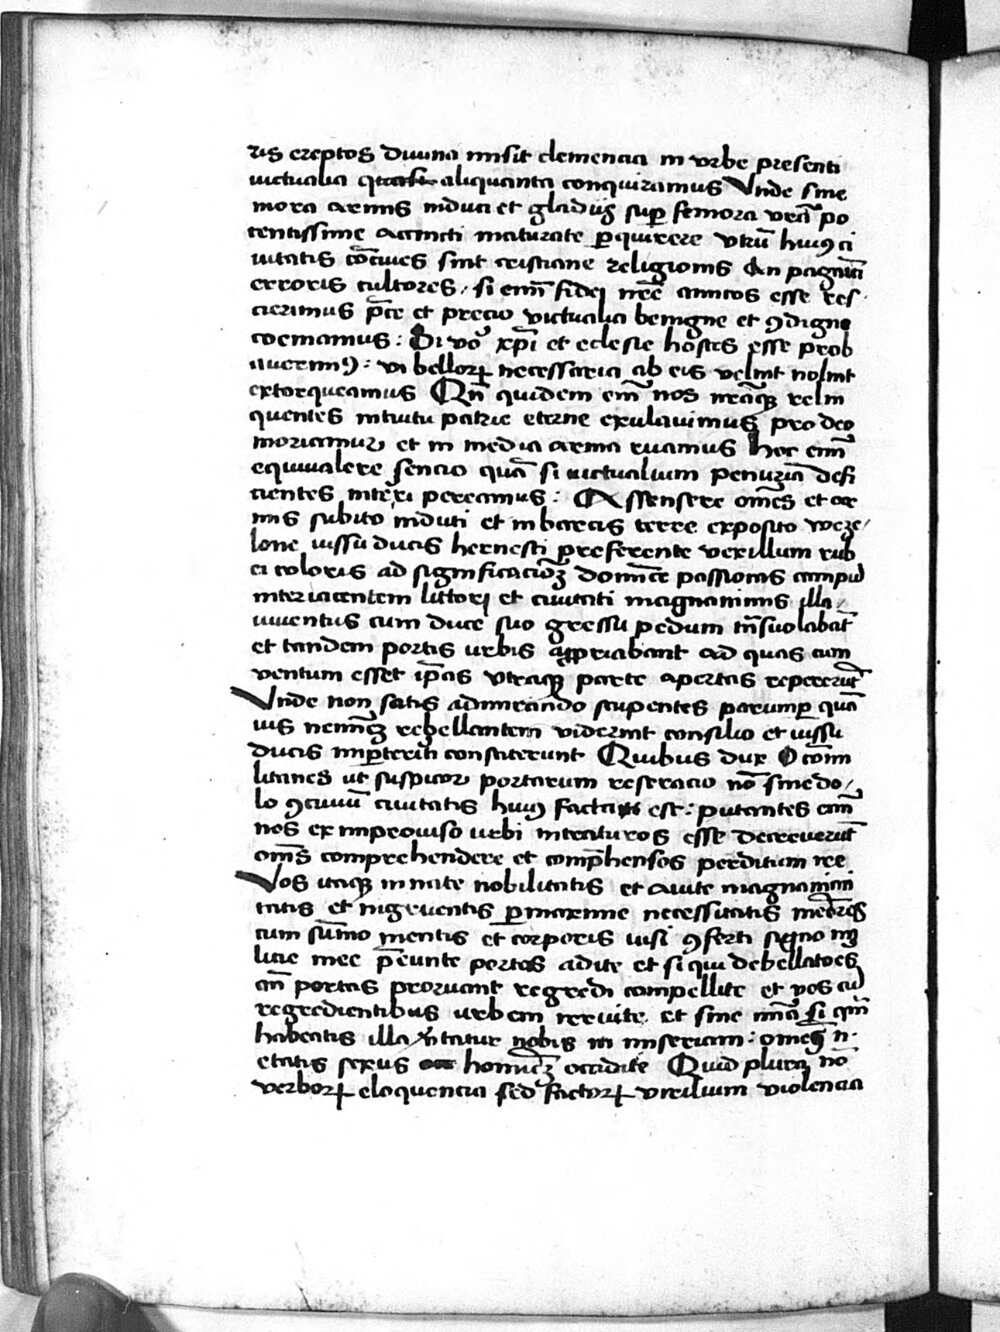 ris ereptos diuina misit clemencia in vrbe presenti
victualia aliquanta conquiramus Vnde sine
mora armis induci et gladiis suꝑ femora vrā po
tentissime accincti maturate ꝑquirere vtrū huiꝰ ci
uitatis cōciues sint cristiane religionis An paganici
erroris cultores / si enī fidei nrē amicos esse res
cierimus p̄ce et precio victualia benigne et ꝯdigne
coemamus : Si vō xp̄i et eclesie hostes esse prob
auerimꝰ : vi belloꝝ necessaria ab eis velint nolint
extorqueamus Qn̄ quidem enī nos relin
quentes intuitu patrie eterne exulauimus pro deo
moriamur et in media arma ruamus Hoc enī
equiualere sencio quā si victualium penuriā defi
cientes interi pereamus : Assensere om̄s et ar
mis subito induti et in barcis terre exposito weze/
lone iussu ducis hernesti preferente vexillum rub
ei coloris ad significacioꝫ domīce passionis campū
interiacentem littori et ciuitati magnanimis illa /
iuuentus cum duce suo gressu pedum tn̄suolabat̄
et tandem portis vrbis appriabant ad quas cum
ventum esset ip̄as vtraqꝫ parte apertas repererūt
Vnde non satis admirando stupentes parumꝑ quā
uis neminēꝫ rebellantem viderint consilio et iussu
ducis imꝑterriti constiterunt Quibus dux O cōm
litones ut suspicor portarum reseracio nō sine do/
lo ꝯciuiū ciuitatis huiꝰ facta est : putantes enī
nos ex improuiso vrbi intraturos esse decreuerūt
om̄s comprehendere et comp̄hensos perditum ire
Vos itaqꝫ innate nobilitatis et auite magnanimi
tatis et ingruentis ꝑmaxime necessitatis
cum sūmo mentis et corporis nisi ꝯferti signo mi
licie mee p̄eunte portas adite et si qui debellatoes
an̄ portas proruant regredi compellite et vos cū
regredientibus vrbem irruite et sine
habeatis illa nobis in miseriam : omēs
etatis sexus hominēꝫ occidite Quid plura nō
verboꝝ eloquencia sed factoꝝ virilium violencia